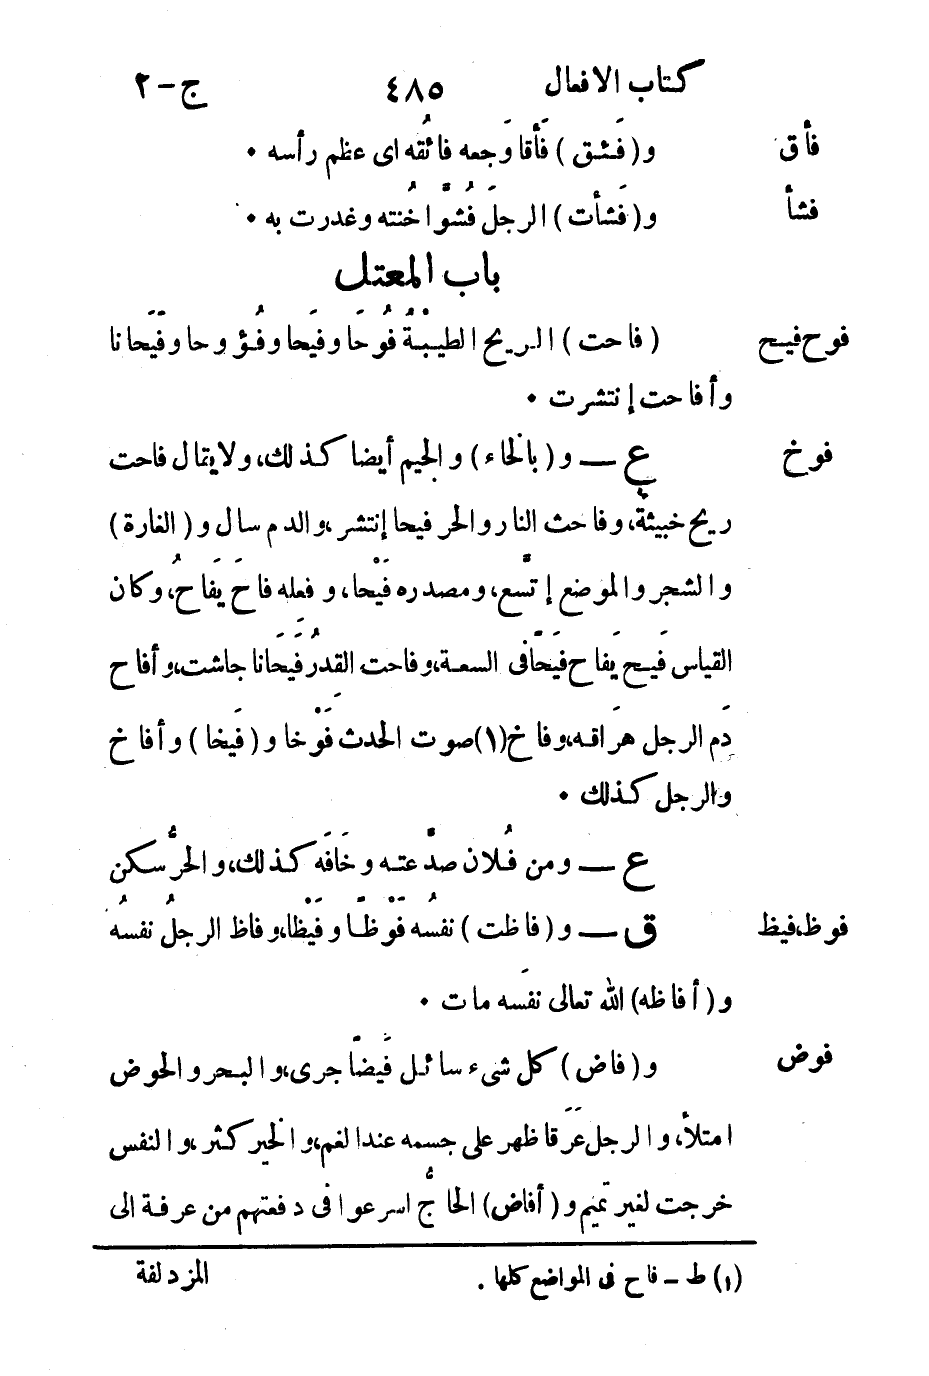 كتاب الافعال ٤٨٥ ج-٢
فأق و(فَئِق) فَأَقا وَجعه فائقُه اى عظم رأسه •
فشأ و(فَشأت) الرجلَ فُشُوًّا خُنته وغدرت به •
باب المعتل
فوح فيح (فاحت) الريح الطيبةُ فَوْحًا وفَيحا وفُؤوحا وفَيَحانا
وأفاحت إنتشرت •
فوخ ع — و(بالخاء) والجيم أيضا كذلك، ولا يقال فاحت
ريح خبيثة، وفاحث النار والحر فيحا إنتشر، والدم سال و(الغارة)
والشجر والموضع إتَّسع، ومصدره فَيْحا، وفعله فاحَ يَفاحُ، وكان
القياس فَيِح يَفاح فَيَحًا فى السعة، وفاحت القدرُ فَيَحانا جاشت، وأفاح
دَم الرجل هَراقه، وفاخ(١) صوت الحدث فَوْخا و(فَيخا) وأفاخ
والرجل كذلك •
ع — ومن فُلان صدَّ عنه وخَافَه كذلك، والحرُّ سكن
فوظ، فيظ ق — و(فاظت) نفسُه فَوْظًا وفَيْظا، وفاظ الرجلُ نفسُه
و(أفاظه) الله تعالى نفسَه مات •
فوض و(فاض) كل شىء سائل فَيضًا جرى، والبحر والحوض
امتلأ، والرجل عَرَقا ظهر على جسمه عند الغم، والخير كثر، والنفس
خرجت لغير تميم و(أفاض) الحاجُّ اسرعوا فى دفعتهم من عرفة الى
المزدلفة
(١) ط – فاح فى المواضع كلها.